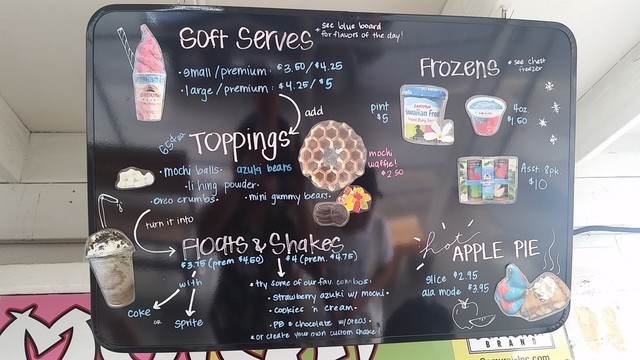 Soft Serves
*see blue board
for flavors of the day!
• small/premium: $3.50/$4.25
• large/premium: $4.25/$5
add
65¢ea
Toppings
• mochi balls • azuki beans
• li hing powder •
• oreo crumbs • mini gummy bears
mochi
waffle!
$2.50
turn it into
Floats & Shakes
$3.75 (prem $4.50)
$4 (prem. $4.75)
with
coke or sprite
* try some of our fav. combos:
• strawberry azuki w/ mochi •
• cookies 'n cream •
• PB & chocolate w/oreos •
* or create your own custom shake!
Frozens
* see chest
freezer
pint
$5
4oz
$1.50
Asst. 8pk
$10
hot APPLE PIE
slice $2.95
ala mode $3.95
BRAND